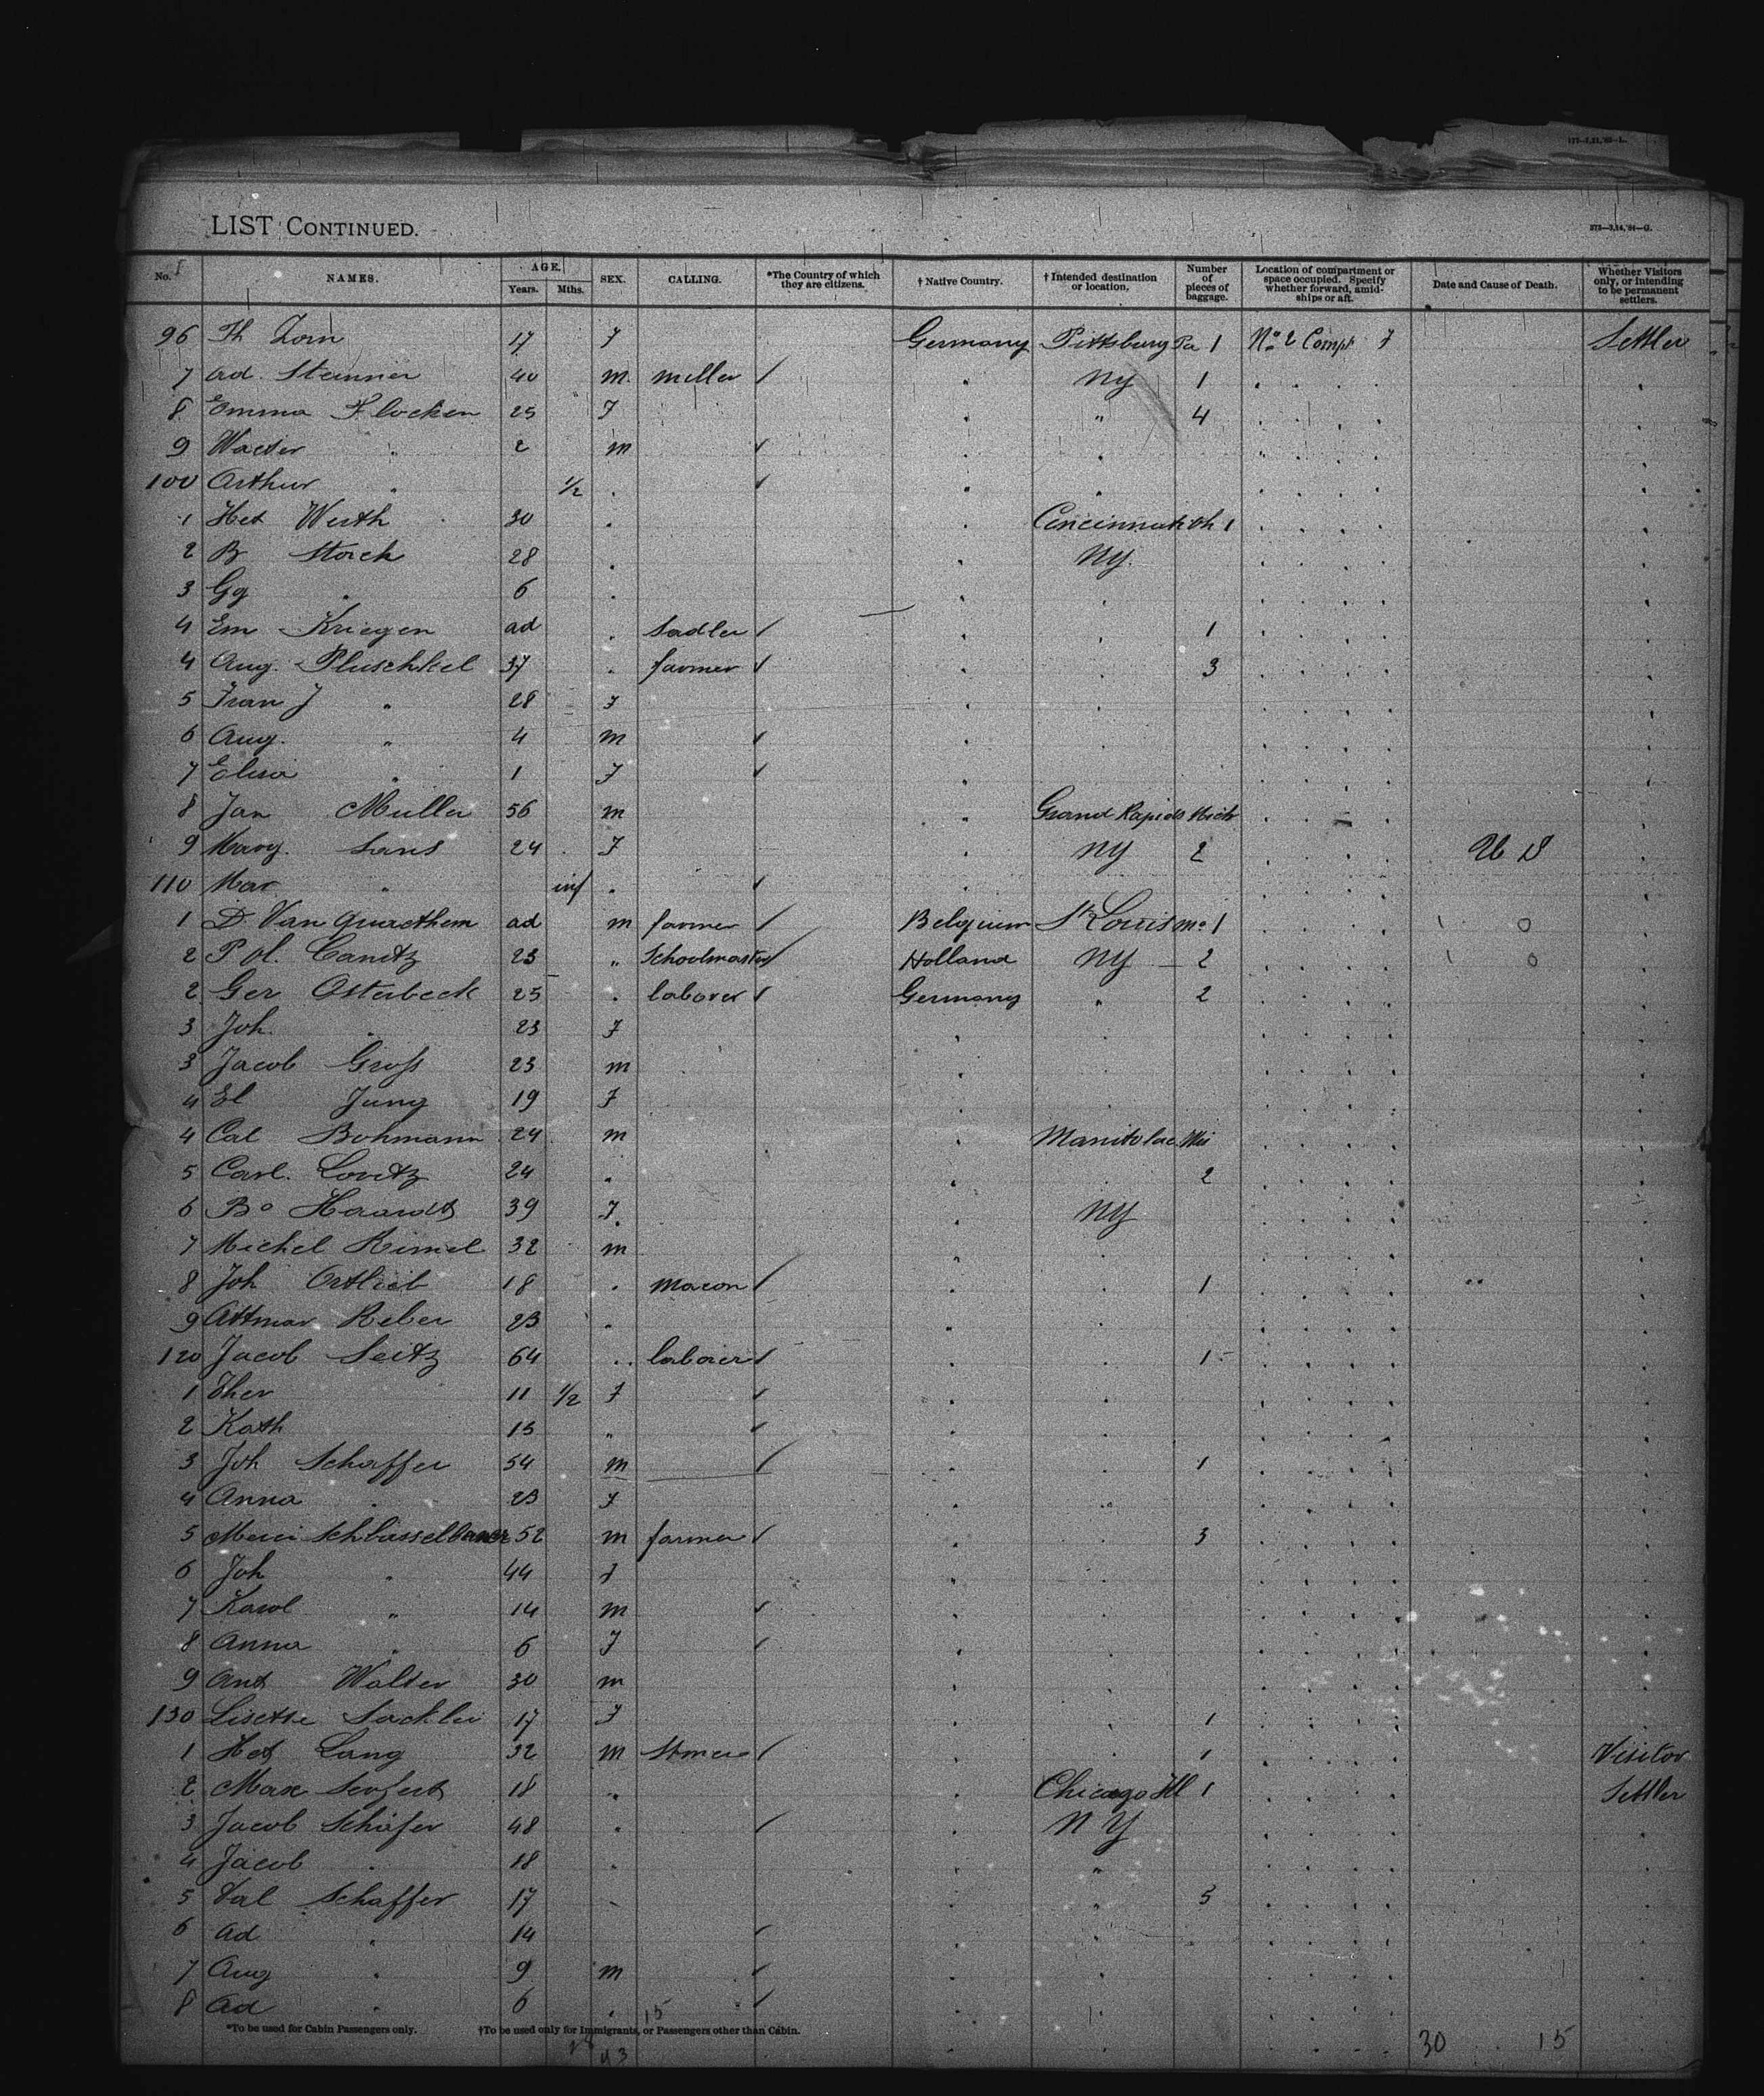 177—1,21,'85—L.
LIST CONTINUED.
373—3,14,'84—G.
No. NAMES. AGE. Years. Mths. SEX. CALLING. *The Country of which they are citizens. † Native Country. † Intended destination or location. Number of pieces of baggage. Location of compartment or space occupied. Specify whether forward, amid-ships or aft. Date and Cause of Death. Whether Visitors only, or intending to be permanent settlers.
96 Th Zorn 17 F Germany Pittsburg Pa 1 No 2 Compt F Settler
7 Ad. Steinner 40 m. miller / " NY 1
8 Emma Flocken 25 F " " 4
9 Walter " 2 m /
100 Arthur " 1/2 " /
1 Het Werth 30 " Cincinnati Oh 1
2 B Storck 28 " NY.
3 Gg " 6 "
4 Em Kriegen ad " Sadler / 1
4 Aug. Pluschkel 37 " farmer / 3
5 Fran J " 28 F
6 Aug. " 4 m /
7 Elisa " 1 F /
8 Jan Muller 56 m Grand Rapids Mich
9 Mary. Sans 24 F NY 2 U S
110 Mar " inf " /
1 D. Van Quaethem ad m farmer / Belgium St Louis Mo 1 0
2 P ol. Canitz 23 " Schoolmaster / Holland NY 2 0
2 Ger Osterbeck 25 " laborer / Germany " 2
3 Joh. " 23 F
3 Jacob Groß 23 m
4 El Jung 19 F
4 Cal Bohmann 24 m Manitolac Wis
5 Carl. Lovitz 24 " 2
6 Bo 39 F NY
7 Michel Kimel 32 m
8 Joh Ortlieb 18 " mason / 1
9 Attmar Reber 23 "
120 Jacob Seitz 64 " laborer / 1
1 Ther 11 1/2 F /
2 Kath 15 " /
3 Joh Schaffer 54 m / 1
4 Anna " 23 F
5 Schlusselbauer 52 m farmer / 3
6 Joh " 44 F
7 Karol " 14 m /
8 Anna " 6 F /
9 Ant Walter 30 m
130 Lisette Sackler 17 F 1
1 Het Lang 32 m / 1 Visitor
2 Max Seufert 18 " Chicago Ill 1 Settler
3 Jacob Schäfer 48 " / N Y
4 Jacob " 18 " "
5 Val Schaffer 17 - " 5
6 Ad " 14 /
7 Aug " 9 m /
8 Ad " 6 " 15 /
*To be used for Cabin Passengers only. †To be used only for Immigrants, or Passengers other than Cabin.
28 43 30 15